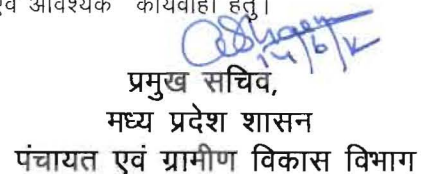 एवं आवश्यक कार्यवाही हेतु।
प्रमुख सचिव,
मध्य प्रदेश शासन
पंचायत एवं ग्रामीण विकास विभाग